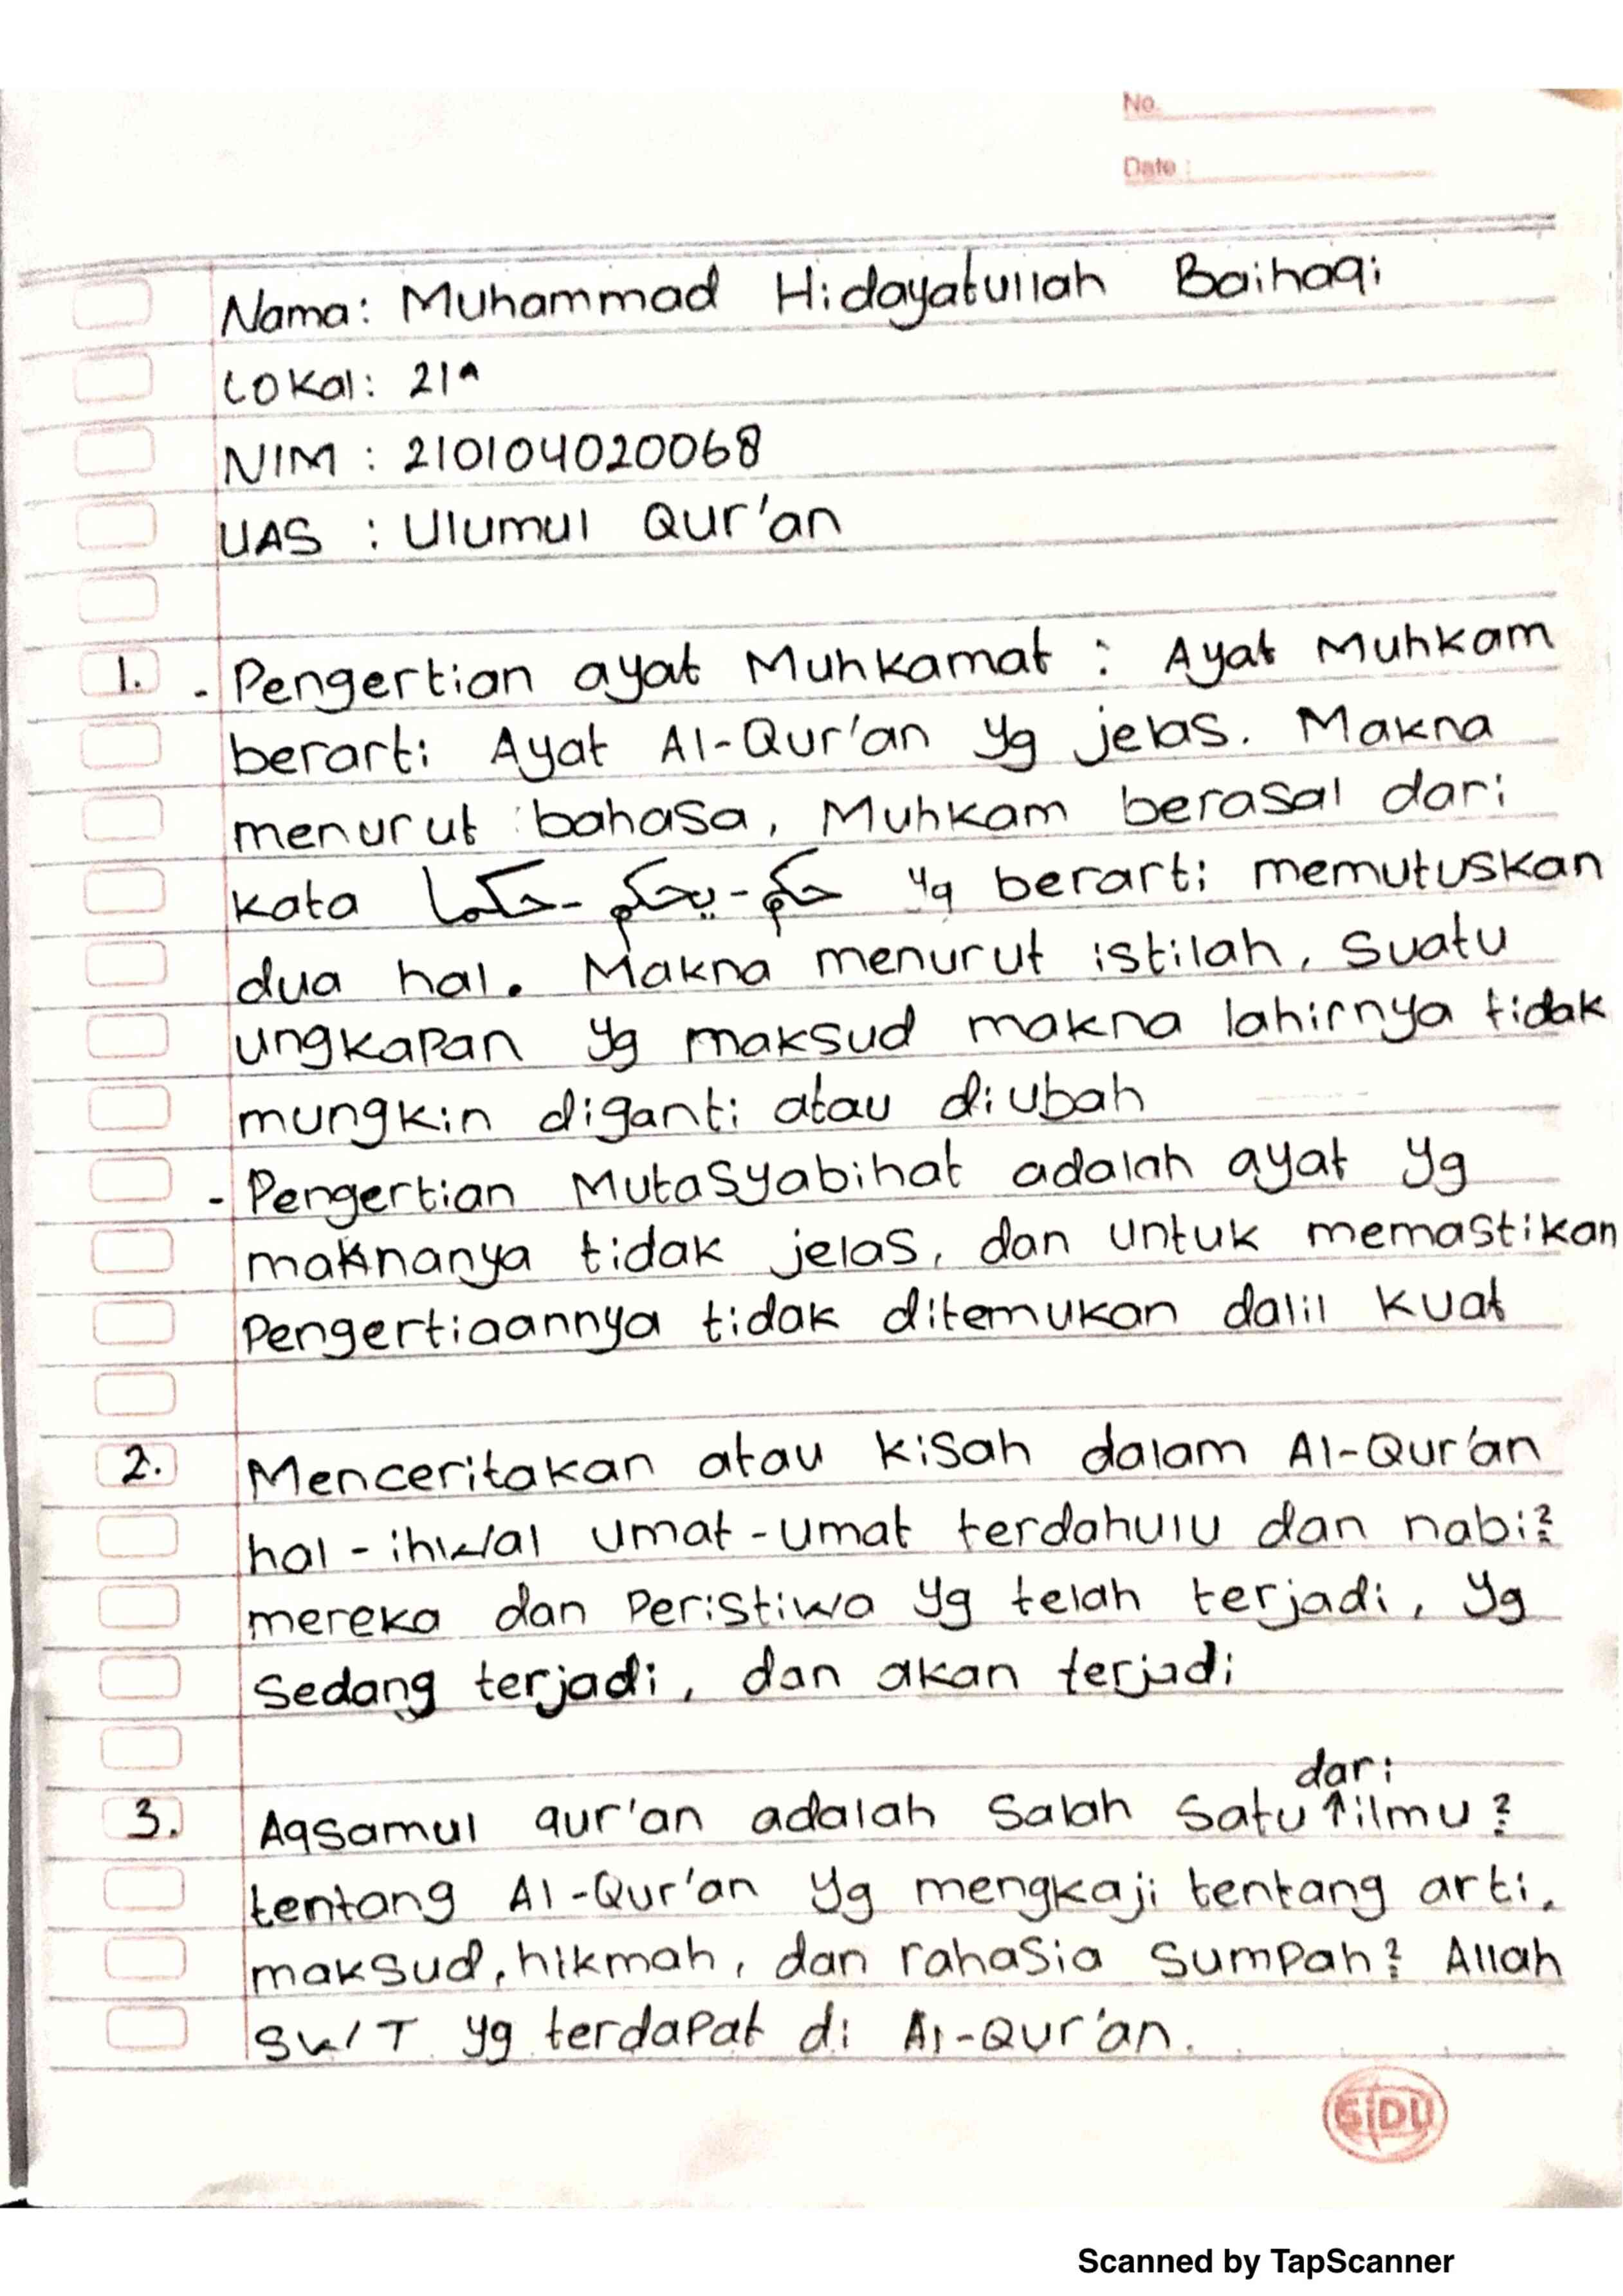 No.
Date :
Nama: Muhammad Hidayatullah Baihaqi
Lokal: 21A
NIM : 210104020068
UAS : Ulumul Qur'an
1. - Pengertian ayat Muhkamat : Ayat Muhkam
berarti Ayat Al-Qur'an yg jelas. Makna
menurut bahasa, Muhkam berasal dari
kata حكم - يحكم - حكما yg berarti memutuskan
dua hal. Makna menurut istilah, suatu
ungkapan yg maksud makna lahirnya tidak
mungkin diganti atau diubah
- Pengertian Mutasyabihat adalah ayat yg
maknanya tidak jelas, dan untuk memastikan
Pengertiaannya tidak ditemukan dalil kuat
2. Menceritakan atau kisah dalam Al-Qur'an
hal-ihwal umat-umat terdahulu dan nabi²
mereka dan Peristiwa yg telah terjadi, yg
sedang terjadi, dan akan terjadi
3. Aqsamul qur'an adalah salah satu dari ilmu²
tentang Al-Qur'an yg mengkaji tentang arti,
maksud, hikmah, dan rahasia sumpah² Allah
SWT yg terdapat di Al-Qur'an.
SiDU
Scanned by TapScanner